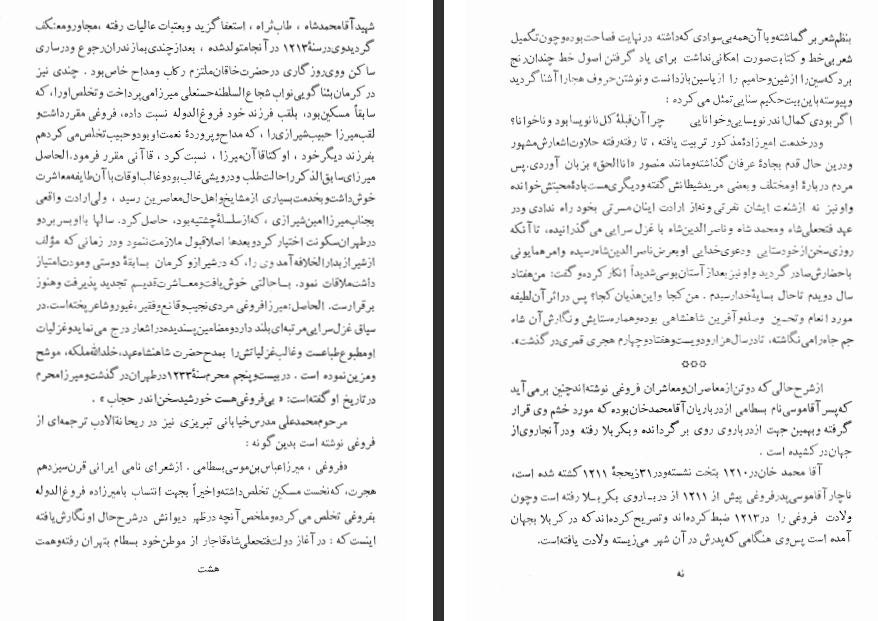 شهید آقامحمدشاه ، طاب ثراه ، استعفا گزید و بعتبات عالیات رفته ،مجاورومعتکف
گردیدوی درسنهٔ ۱۲۱۳ در آنجا متولدشده ، بعدازچندی بمازندران رجوع ودرساری
ساکن ووی روزگاری در حضرت خاقان ملتزم رکاب ومداح خاص بود . چندی نیز
در کرمان بثناگویی نواب شجاع السلطنه حسنعلی میرزا می پرداخت و تخلص اورا، که
سابقاً مسکین بود، بلقب فرزند خود فروغ الدوله نسبت داده، فروغی مقررداشت و
لقب میرزا حبیب شیرازی را ، که مداح و پروردهٔ نعمت او بود و حبیب تخلص می کرد هم
بفرزند دیگر خود ، او کتا قاآن میرزا ، نسبت کرد ، قاآنی مقرر فرمود.الحاصل
میرزای سابق الذکر را حالت طلب و درویشی غالب بود و غالب اوقات با آن طایفه معاشرت
خوش داشت و بخدمت بسیاری ازمشایخ واهل حال معاصرین رسید ، ولی ارادت واقعی
بجناب میرزا امین شیرازی ، که از سلسلهٔ چشتیه بود، حاصل کرد. سالها با او بسر برد و
در طهران سکونت اختیار کرد و بعدها اصلا قبول ملازمت ننمود ودر زمانی که مؤلف
ازشیراز بدارالخلافه آمد وی را، که درشیراز و کرمان بسابقهٔ دوستی ومودت امتیاز
داشت ملاقات نمود. بـا حالتی خوش یافت ومعـاشرت قدیم تجدید پذیرفت وهنوز
برقرارست. الحاصل:میرزا فروغی مردی نجیب و قانع و فقیر ،غیور و شاعر پخته است.در
سیاق غزل سرایی مرتبه‌ای بلند دارد و مضامین پسندیده دراشعار درج می نماید و غزلیات
او مطبوع طباعست وغالب غزلیاتش را بمدح حضرت شاهنشاه عهد، خلدالله ملکه، موشح
ومزین نموده است . در بیست و پنجم محرم سنهٔ ۱۲۳۳ در طهران در گذشت و میرزا محرم
در تاریخ او گفته است: « بی فروغی هست خورشید سخن اندر حجاب » .
مرحوم محمدعلی مدرس خیابانی تبریزی نیز در ریحانة الادب ترجمه‌ای از
فروغی نوشته است بدین گونه :
«فروغی ، میرزا عباس بن موسی بسطامی . ازشعرای نامی ایرانی قرن سیزدهم
هجرت، که نخست مسکین تخلص داشته و اخیراً بجهت انتساب بامیرزاده فروغ الدوله
بفروغی تخلص می کرده وملخص آنچه در ظهر دیوانش درشرح حال او نگارش یافته
اینست که : در آغاز دولت فتحعلی شاه قاجار از موطن خود بسطام بتهران رفته وهمت
هشت
بنظم شعر بر گماشته و با آن همه بی سوادی که داشته در نهایت فصاحت بوده و چون تکمیل
شعر بی خط و کتابت صورت امکانی نداشت برای یاد گرفتن اصول خط چندان رنج
برد که سین را ازشین و حامیم را از یاسین باز دانست و نوشتن حروف هجارا آشنا گردید
و پیوسته باین بیت حکیم سنایی تمثل می کرده :
اگر بودی کمال اندر نویسایی وخوانایی چرا آن قبلهٔ کل نانویسا بود و ناخوانا؟
ودرخدمت امیرزادهٔ مذکور تربیت یافته ، تا رفته رفته حلاوت اشعارش مشهور
ودرین حال قدم بجادهٔ عرفان گذاشته ومانند منصور «اناالحق» بزبان آوردی.پس
مردم دربارهٔ او مختلف و بعضی مرید شیطانش گفته و دیگری مست بادهٔ محبتش خوانده
واونیز نه ازشنعت ایشان نفرتی ونه از ارادت اینان مسرتی بخود راه ندادی ودر
عهد فتحعلی شاه ومحمد شاه و ناصرالدین شاه با غزل سرایی می گذرانیده، تا آنکه
روزی سخن از خودستایی ودعوی خدایی او بعرض ناصرالدین شاه رسیده وامر همایونی
باحضارش صادر گردید و او نیز بعد از آستان بوسی شدیداً انکار کرده و گفت: من هفتاد
سال دویدم تاحال بسایهٔ خدا رسیدم . من کجا و این هذیان کجا؟ پس در اثر آن لطیفه
مورد انعام و تحسین وصله و آفرین شاهنشاهی بوده و هماره ستایش و نگارش آن شاه
جم جاه را می نگاشته، تا درسال هزار و دویست و هفتاد و چهارم هجری قمری در گذشت».
☆☆☆
ازشرح حالی که دوتن از معاصران و معاشران فروغی نوشته‌اند چنین بر می آید
که پسر آقا موسی نام بسطامی از درباریان آقا محمد خان بوده که مورد خشم وی قرار
گرفته و بهمین جهت از درباروی روی بر گردانده و بکربلا رفته ودر آنجا روی از
جهان در کشیده است .
آقا محمد خان در ۱۲۱۰ بتخت نشسته و در ۳۱ ذیحجهٔ ۱۲۱۱ کشته شده است،
ناچار آقا موسی پدر فروغی پیش از ۱۲۱۱ از دربـار وی بکربـلا رفته است وچون
ولادت فروغی را در ۱۲۱۳ ضبط کرده‌اند و تصریح کرده‌اند که در کربلا بجهان
آمده است پس وی هنگامی که پدرش در آن شهر می زیسته ولادت یافته است.
نه